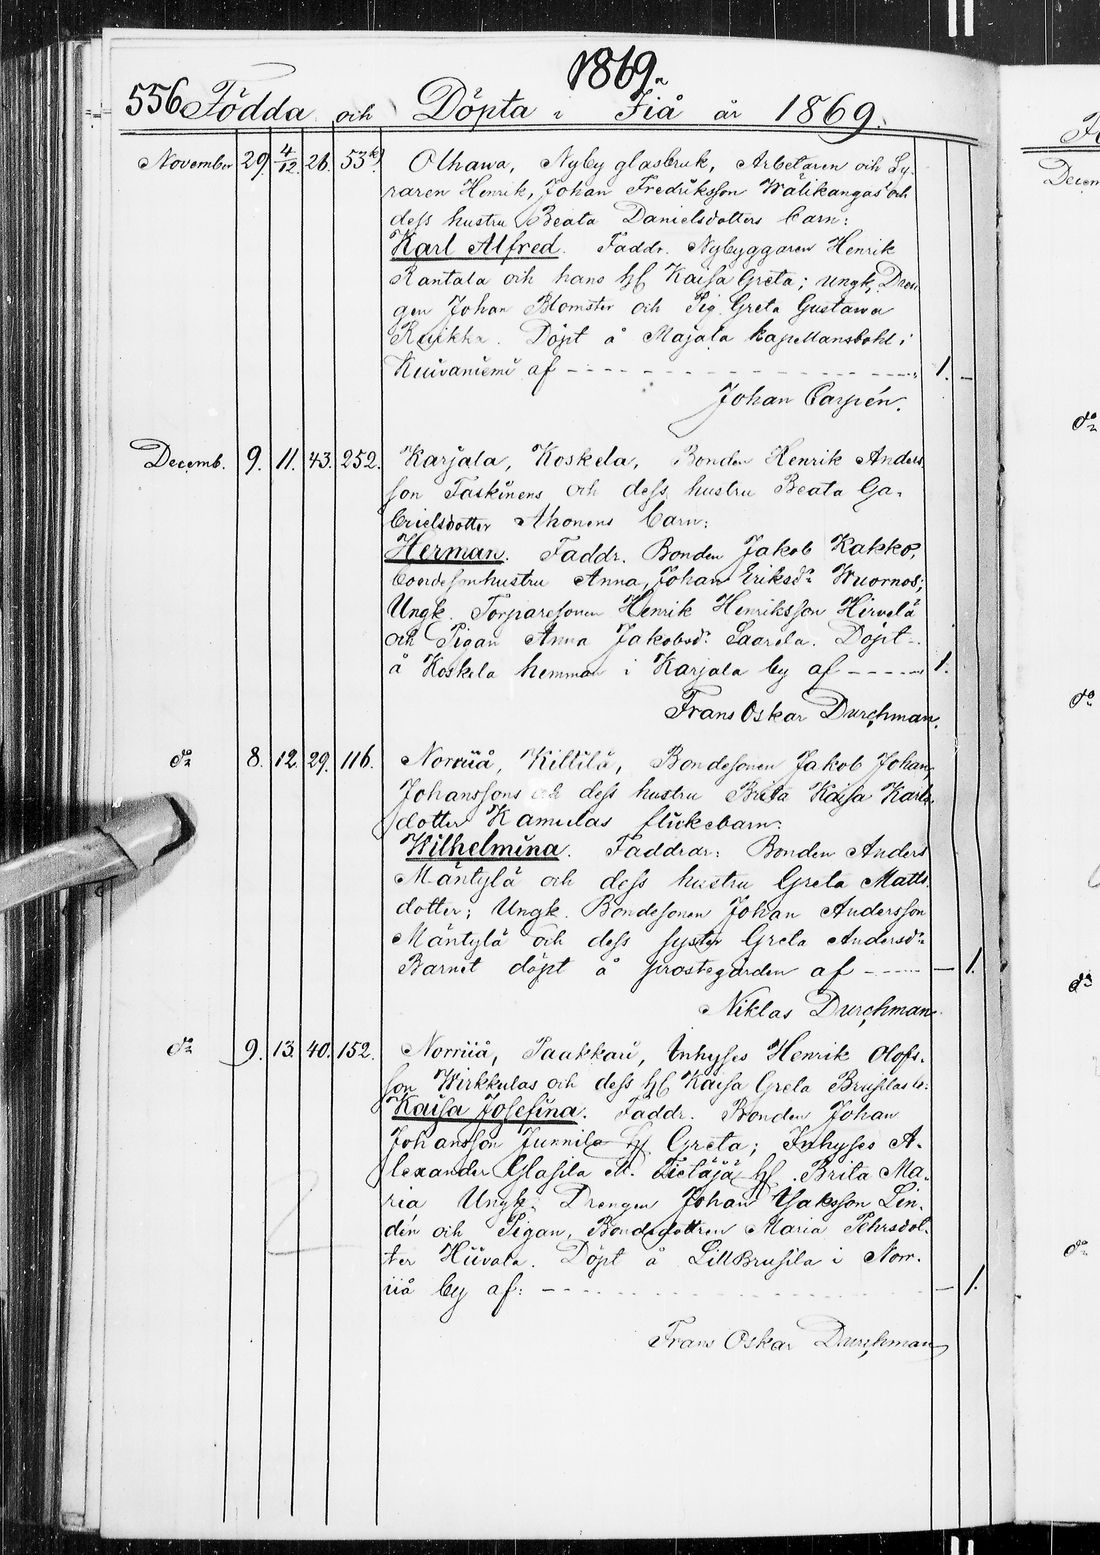 1869.
556 Födda och Döpta i Iiå år 1869.
November 29. 4/12. 26. 53 Olhawa, Nyby glasbruk, Arbetaren och Sy-
raren Henrik, Johan Fredriksson Wälikangas och
dess hustru Beata Danielsdotters barn:
Karl Alfred. Faddr. Nybyggaren Henrik
Rantala och hans hf Kaisa Greta; Ungk. Dren-
gen Johan Blomster och Pig. Greta Gustawa
Ruikka. Döpt å Majala kapellansbohl i
Kuivaniemi af 1. –
Johan Carpén.
Decemb. 9. 11. 43. 252. Karjala, Koskela, Bonden Henrik Anders
son Taskinens och dess hustru Beata Ga-
brielsdotter Ahonens barn:
Herman. Faddr. Bonden Jakob Kakko,
bondesonhustru Anna, Johan Eriksdr Wuornos;
Ungk. Torparesonen Henrik Henriksson Hirvelä
och Pigan Anna Jakobsdr Saarela. Döpt
å Koskela hemman i Karjala by af 1.
Frans Oskar Durchman.
do 8. 12. 29. 116. Norriiå, Kittilä, Bondesonen Jakob Johan,
Johanssons och dess hustru Brita Kaisa Karls
dotter Kamulas flickebarn:
Wilhelmina. Faddrar: Bonden Anders
Mäntylä och dess hustru Greta Matts
dotter; Ungk. Bondesonen Johan Andersson
Mäntylä och dess syster Greta Andersdr
Barnet döpt å prostegården af – 1.
Niklas Durchman
do 9. 13. 40. 152. Norriiå, Paakkari, Inhyses Henrik Olofs-
son Wirkkulas och dess hf Kaisa Greta Brusilas b:
Kaisa Josefina. Faddr. Bonden Johan
Johansson Junnila hf Greta; Inhyses A-
lexander Glasila hf. Brita Ma-
ria Ungk. Drengen Johan Isaksson Lin-
dén och Pigan, Bondedottren Maria Pehrsdot-
ter Hiivala. Döpt å LillBrusila i Norr-
iiå by af: – 1.
Frans Oskar Durchman
Decem
do
do
do
do